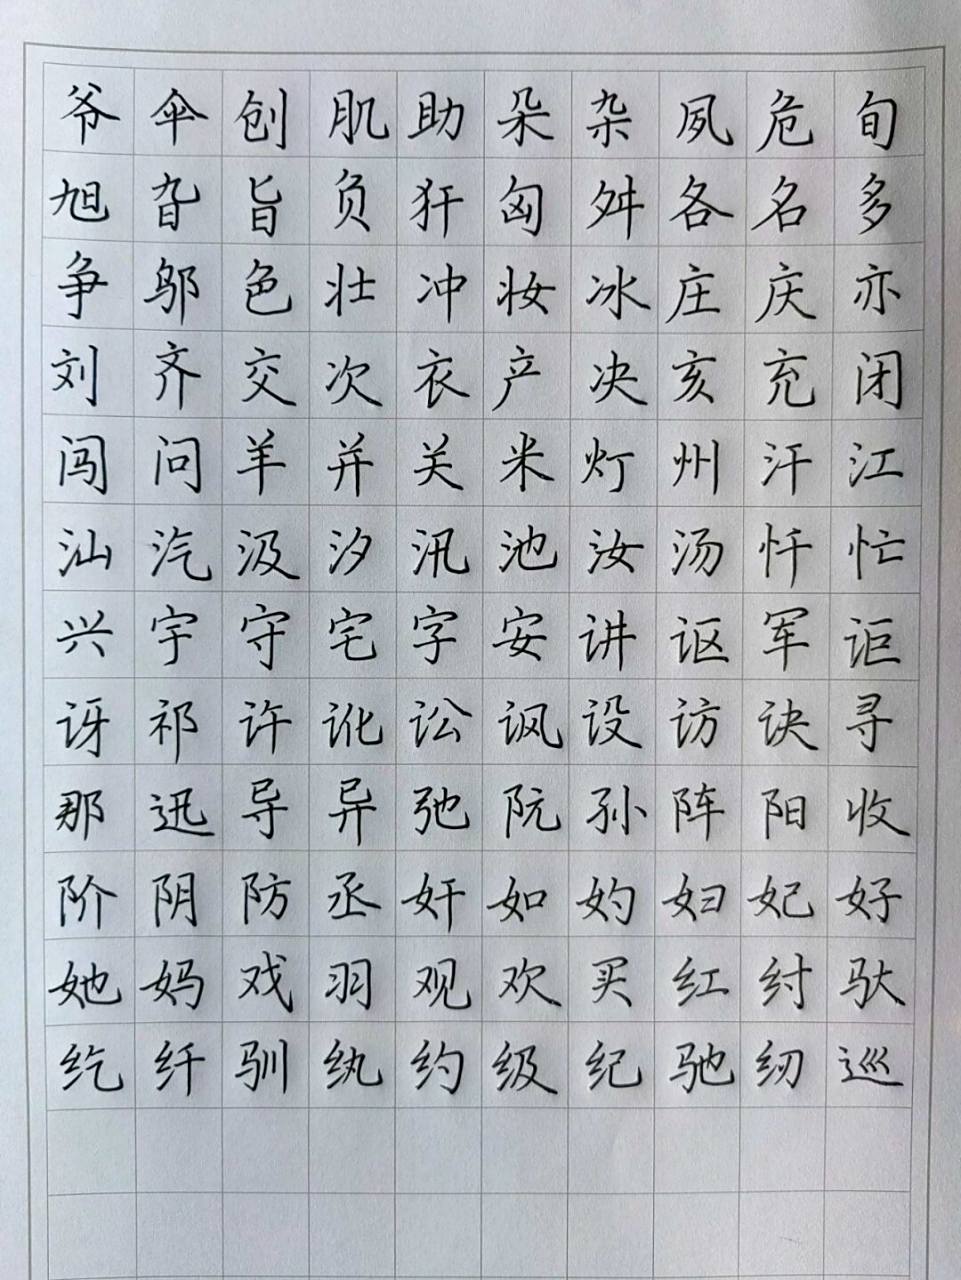 爷伞创肌助朵杂夙危旬
旭旮旨负犴匈舛各名多
争邬色壮冲妆冰庄庆亦
刘齐交次衣产决亥充闭
闯问羊并关米灯州汗江
汕汔汲汐汛池汝汤忏忙
兴宇守宅字安讲讴军讵
讶祁许讹讼讽设访诀寻
那迅导异弛阮孙阵阳收
阶阴防丞奸如妁妇妃好
她妈戏羽观欢买红纣驮
纥纤驯纨约级纪驰纫巡